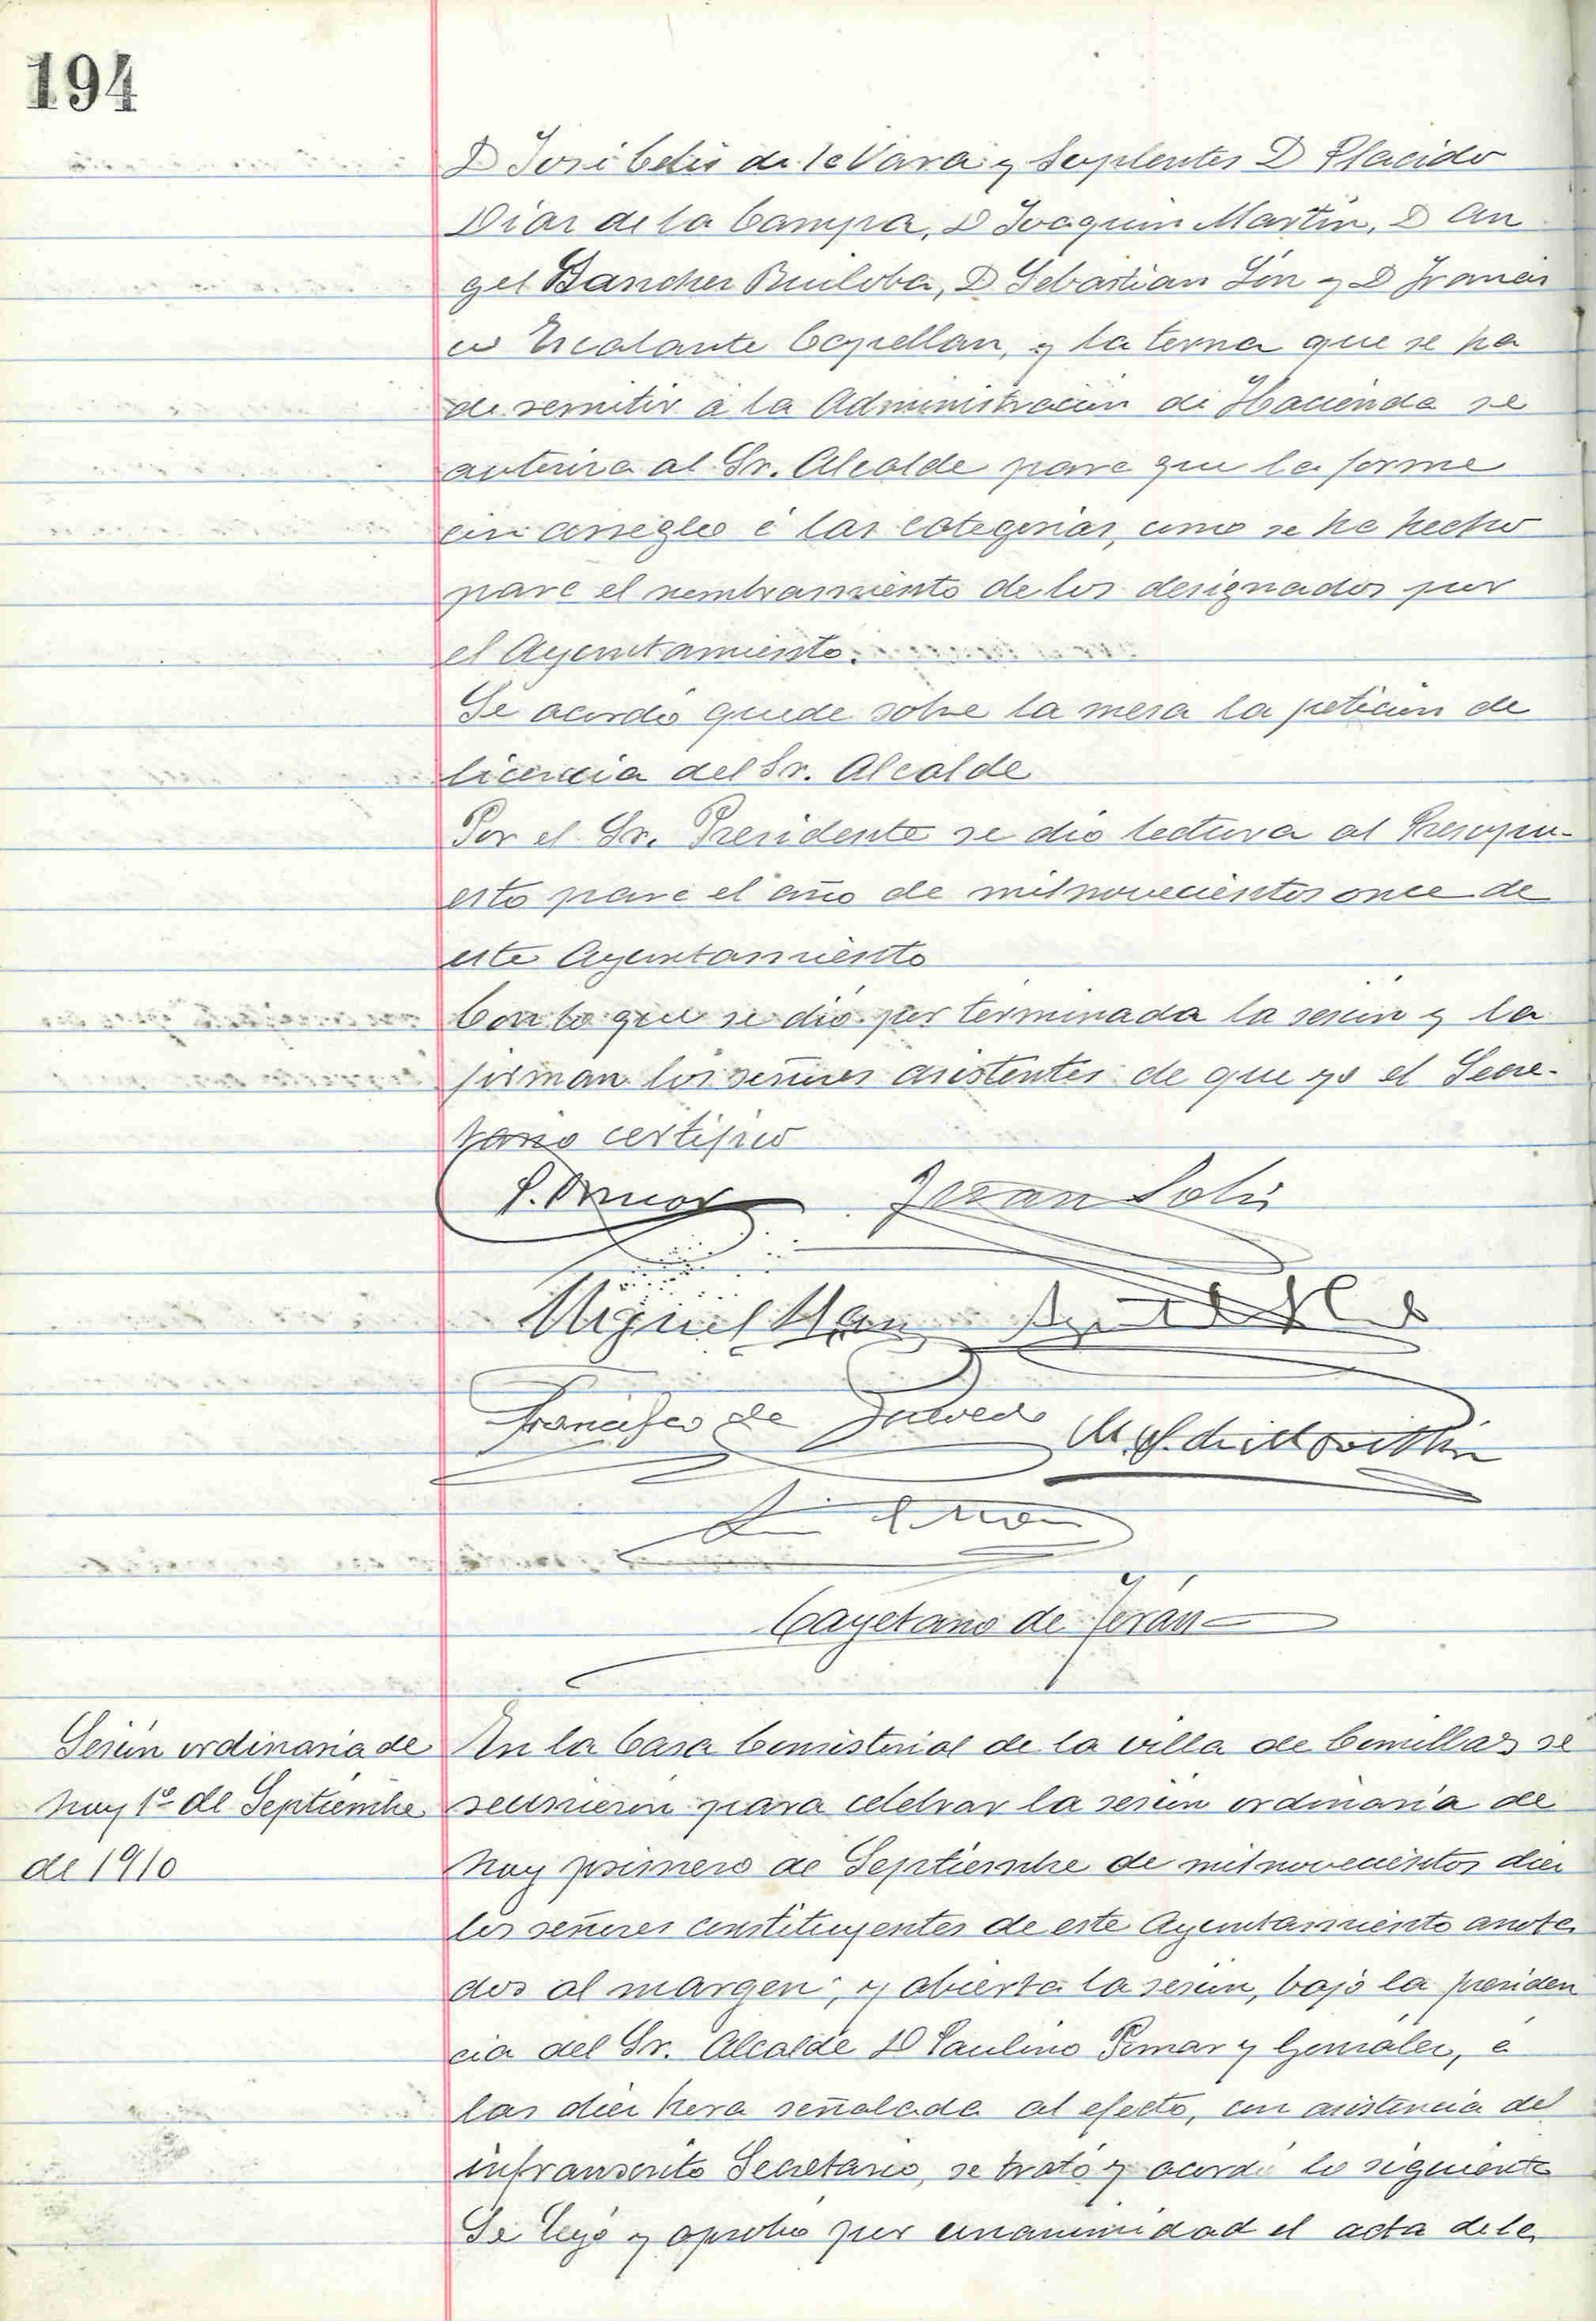 194
D José Celis de la Vara y Suplentes D Placido
Diaz de la Campa, D Joaquin Martin, D An
gel Sanchez Ruiloba, D Sebastian Son y D Francis
co Escalante Capellan, y la terna que se ha
de remitir á la Administracion de Hacienda se
autoriza al Sr. Alcalde para que la forme
con arreglo á las categorias, como se ha hecho
para el nombramiento de los designados por
el Ayuntamiento.
Se acordó quede sobre la mesa la peticion de
licencia del Sr. Alcalde
Por el Sr. Presidente se dió lectura al Presupu-
esto para el año de mil novecientos once de
este Ayuntamiento
Con lo que se dió por terminada la sesion y la
firman los señores asistentes de que yo el Secre-
tario certifico
Juan Solis
Miguel
Francisco de
Cayetano de Terán
Sesion ordinaria de
hoy 1º de Septiembre
de 1910
En la Casa Consistorial de la villa de Comillas se
reunieron para celebrar la sesion ordinaria de
hoy primero de Septiembre de mil novecientos diez
los señores constituyentes de este Ayuntamiento anota
dos al margen, y abierta la sesion, bajo la presiden
cia del Sr. Alcalde D Paulino Pomar y Gonzalez, á
las diez hora señalada al efecto, con asistencia del
infranscrito Secretario, se trató y acordó lo siguiente
Se leyó y aprobó por unanimidad el acta de la